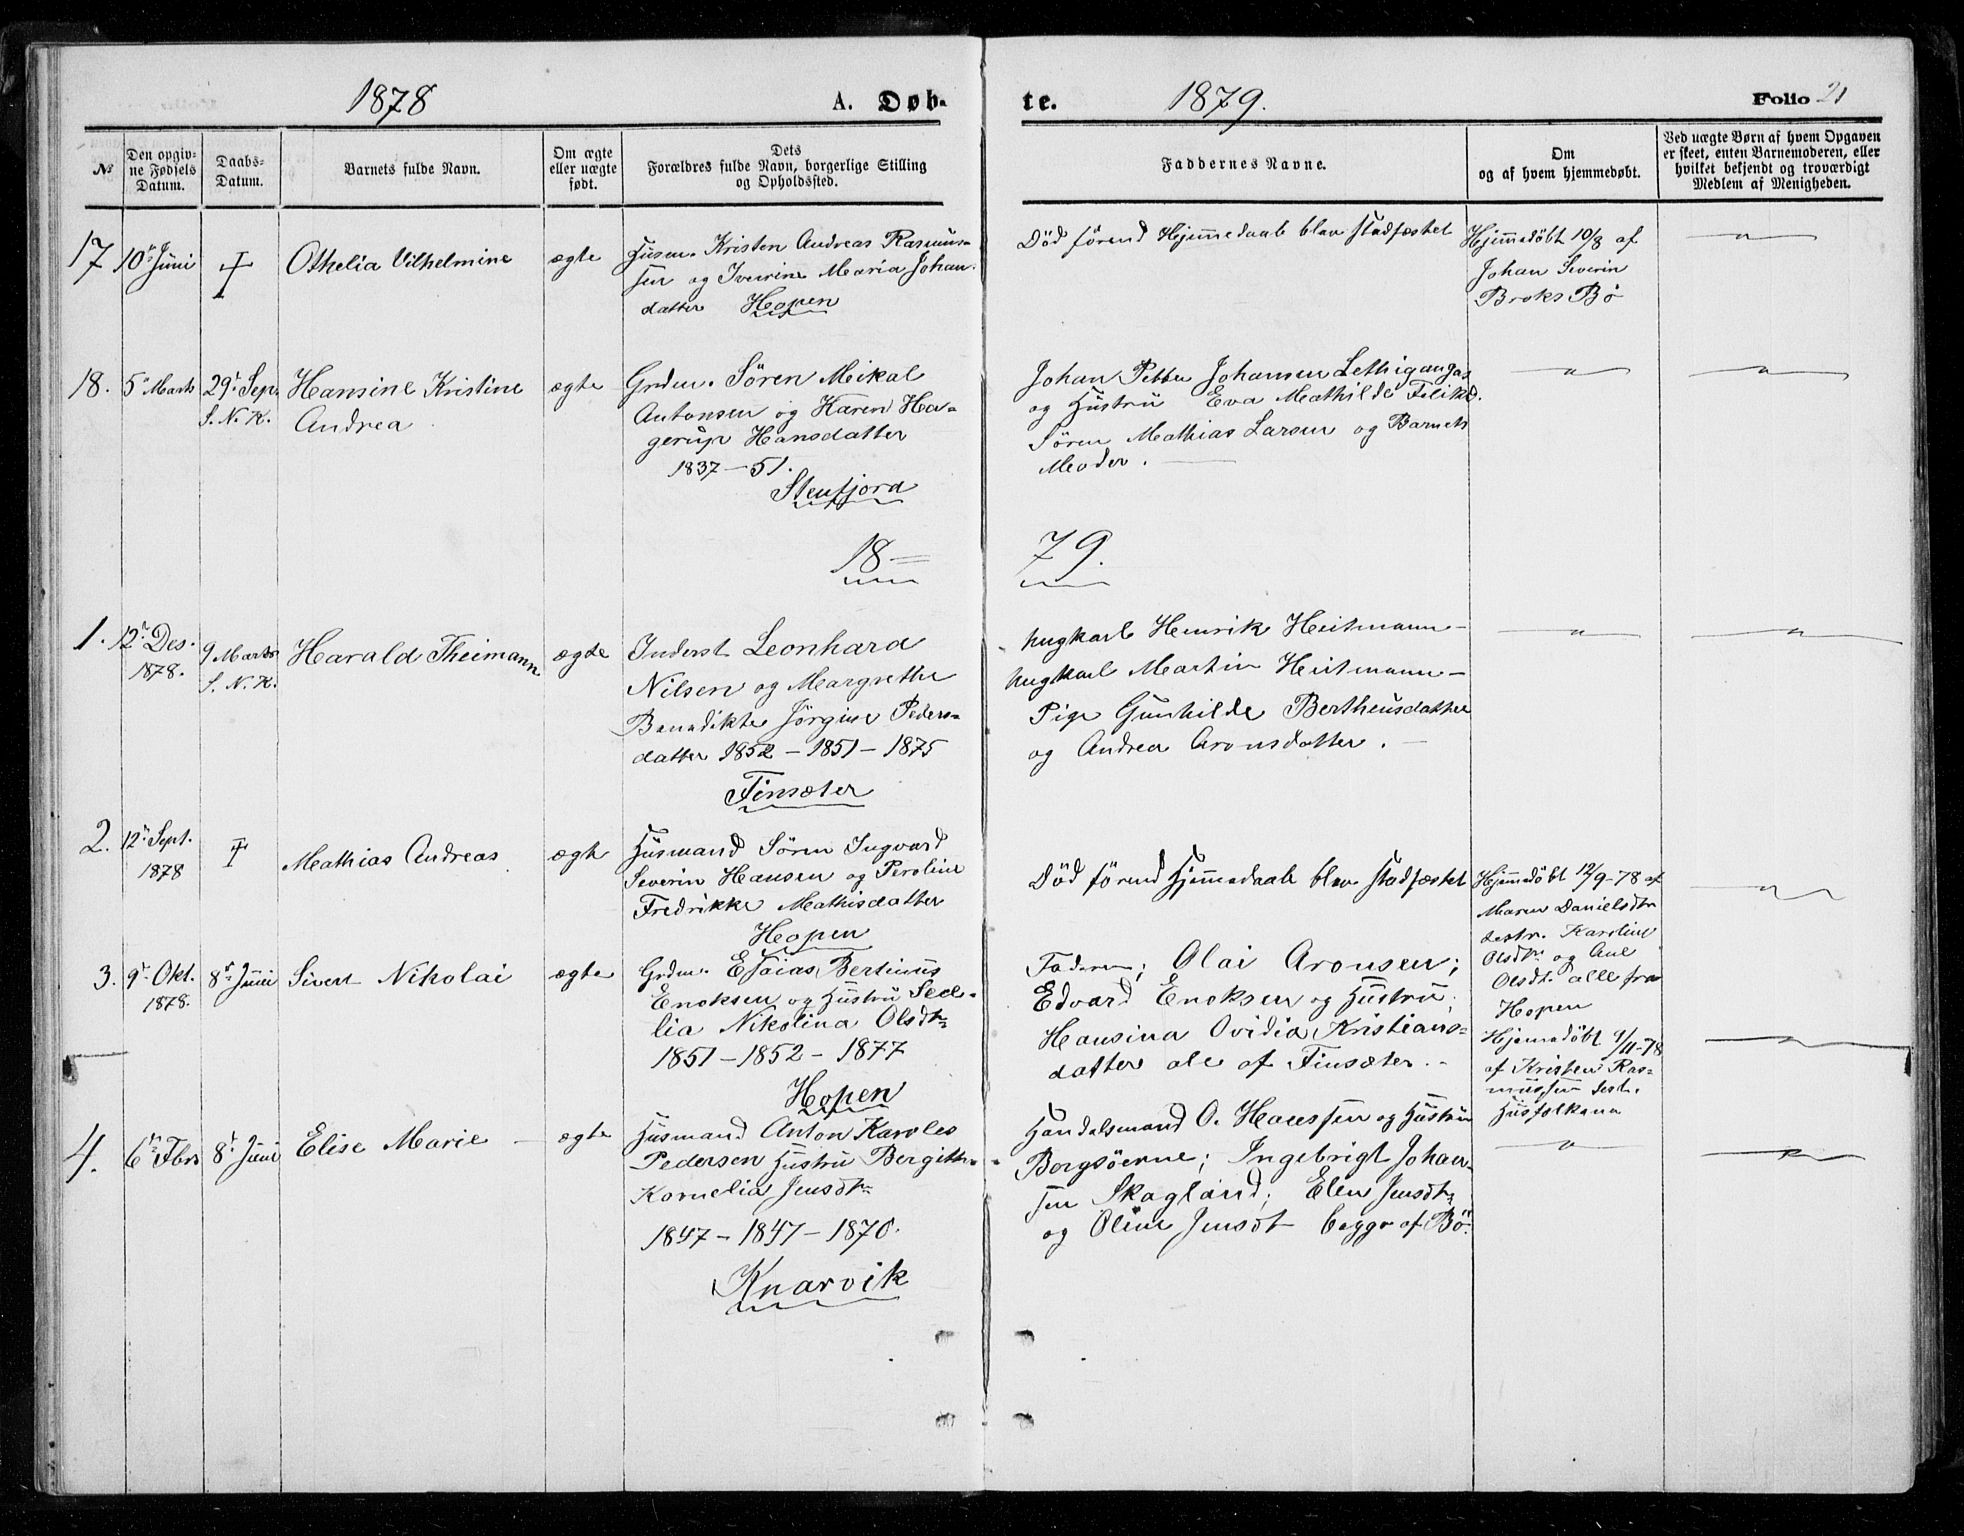 1878
A. Døb-
te.
1879.
Folio 21
№
Den opgiv-
ne Fødsels
Datum.
Daabs-
Datum.
Barnets fulde Navn.
Om ægte
eller uægte
født.
Dets
Forældres fulde Navn, borgerlige Stilling
og Opholdssted.
Faddernes Navne.
Om
og af hvem hjemmedøbt.
Ved uægte Børn af hvem Opgaven
er skeet, enten Barnemoderen, eller
hvilket bekjendt og troværdigt
Medlem af Menigheden.
17
10 Juni
Othelia Vilhelmine
ægte
Husm. Kristen Andreas Rasmus-
sen og Iverine Maria Johan-
datter Hopen
Død førend Hjemmedaab blev stadfæstet
Hjemmedöbt 10/8 af
Johan Severin
Broks Bö
18.
5 Marts
29 Sep.
S. N. K.
Hansine Kristine
Andrea
ægte
Grdm. Sören Meikal
Antonsen og Karen Ha-
gerup Hansdatter
1837-51.
Stenfjord
Johan Petter Johansen
og Hustru Eva Mathilde
Sören Mathias Larsen og Barnets
Moder.
18
79.
1.
12 Des.
1878.
9 Marts
S. N. K.
Harald Theimann
ægte
Inderst Leonhard
Nilsen og Margrethe
Benedikte Jørgine Peders-
datter 1852-1851-1875
Finsæter
Ungkarl Henrik Heitmann-
Ungkarl Martin Heitmann-
Pige Gunhilde Bertheusdatter
og Andrea Aronsdatter.
2.
12 Sept.
1878
Mathias Andreas
ægte
Husmand Sören Ingvard
Severin Hansen og Peroline
Fredrikke Mathisdatter
Hopen
Død förend Hjemmedaab blev stadfæstet
Hjemmedöbt 12/9-78 af
Maren Danielsdtr
testr. Karoline
Olsdtr og Ane
Olsdt. alle fra
Hopen
3.
9 Okt.
1878.
8 Juni
Sivert Nikolai
ægte
Grdm. Esaias Bertinus
Enoksen og Hustru Seel-
lia Nikolina Olsdtr
1851-1852-1877
Hopen
Faderen; Olai Aronsen;
Edvard Enoksen og Hustru;
Hansina Ovidia Kristians-
datter ale af Finsæter.-
Hjemmedöbt 9/11-78
af Kristen Ras-
mussen test.
Husfolkene
4.
6 Fbr
8 Juni
Elise Marie
ægte
Husmand Anton Karoles
Pedersen Hustru Bergitte
Kornelia Jensdtr
1847-1847-1870.
Knarvik
Handelsmand O. Haussen og Hustru
Borgsöerne; Ingebrigt Johan-
sen Skagland; Elen Jensdtr
og Oline Jensdt begge af Bö.